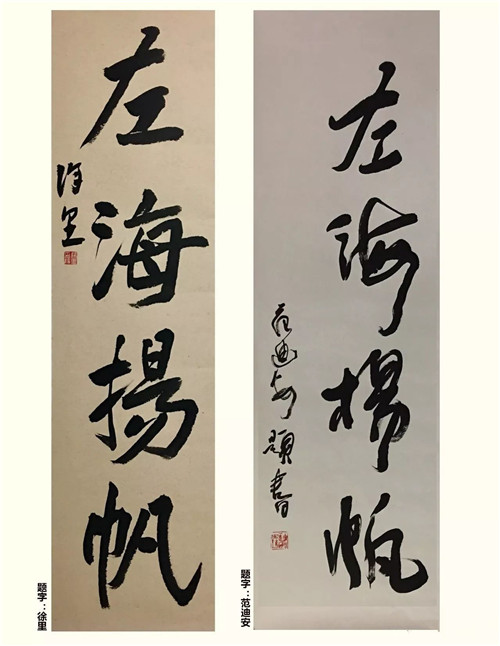 左海揚帆
徐里
题字：徐里
左海揚帆
范迪安題書
题字：范迪安